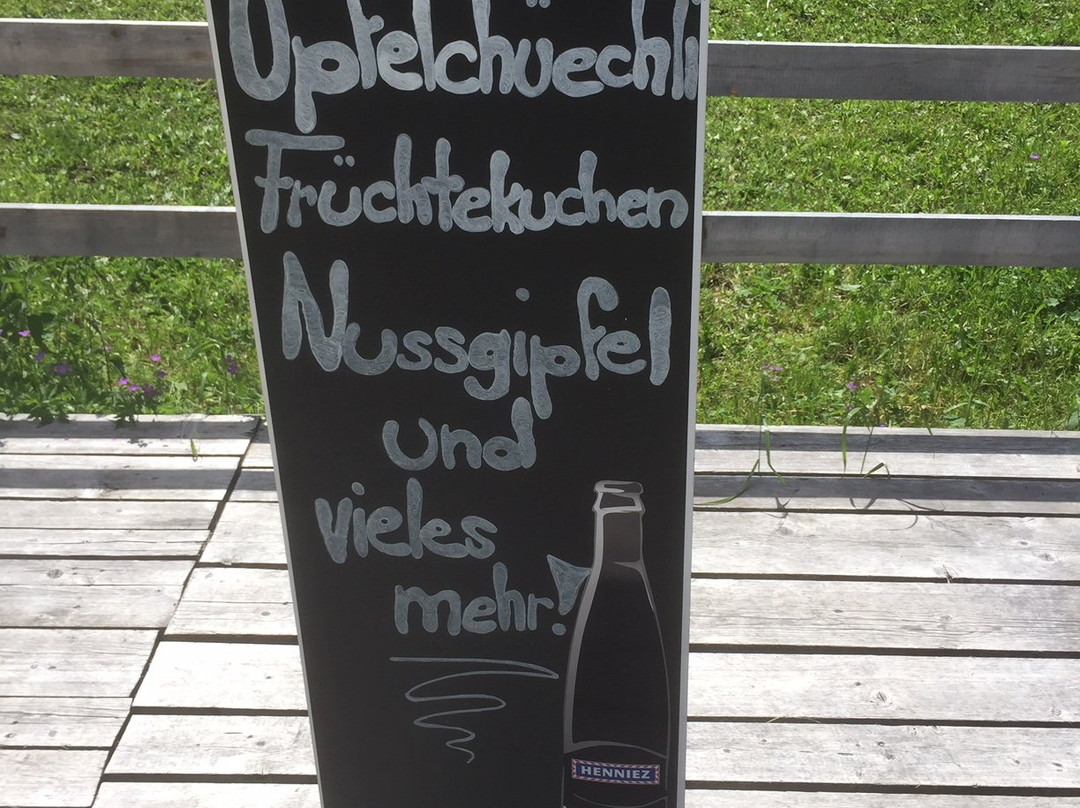 Öpfelchüechli
Früchtekuchen
Nussgipfel
und
vieles
mehr!
HENNIEZ